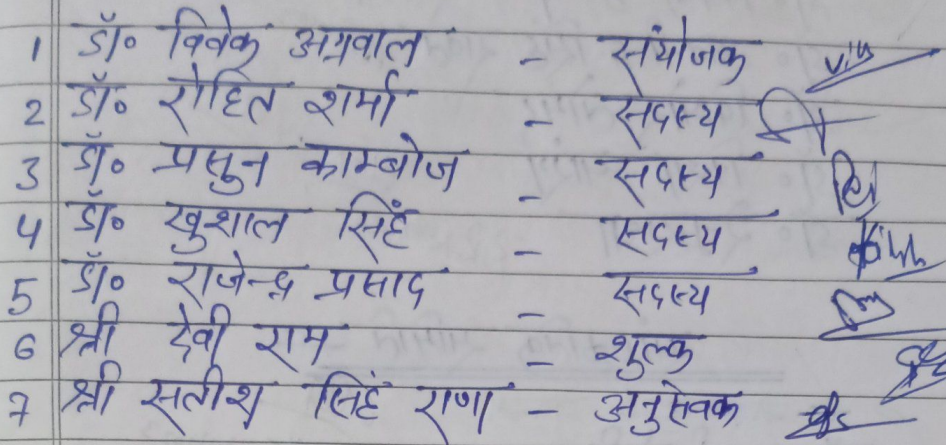 1 डॉ० विवेक अग्रवाल - संयोजक
2 डॉ० रोहित शर्मा - सदस्य
3 डॉ० प्रसुन काम्बोज - सदस्य
4 डॉ० खुशाल सिंह - सदस्य
5 डॉ० राजेन्द्र प्रसाद - सदस्य
6 श्री देवी राम - शुल्क
7 श्री सतीश सिंह राणा - अनुसेवक